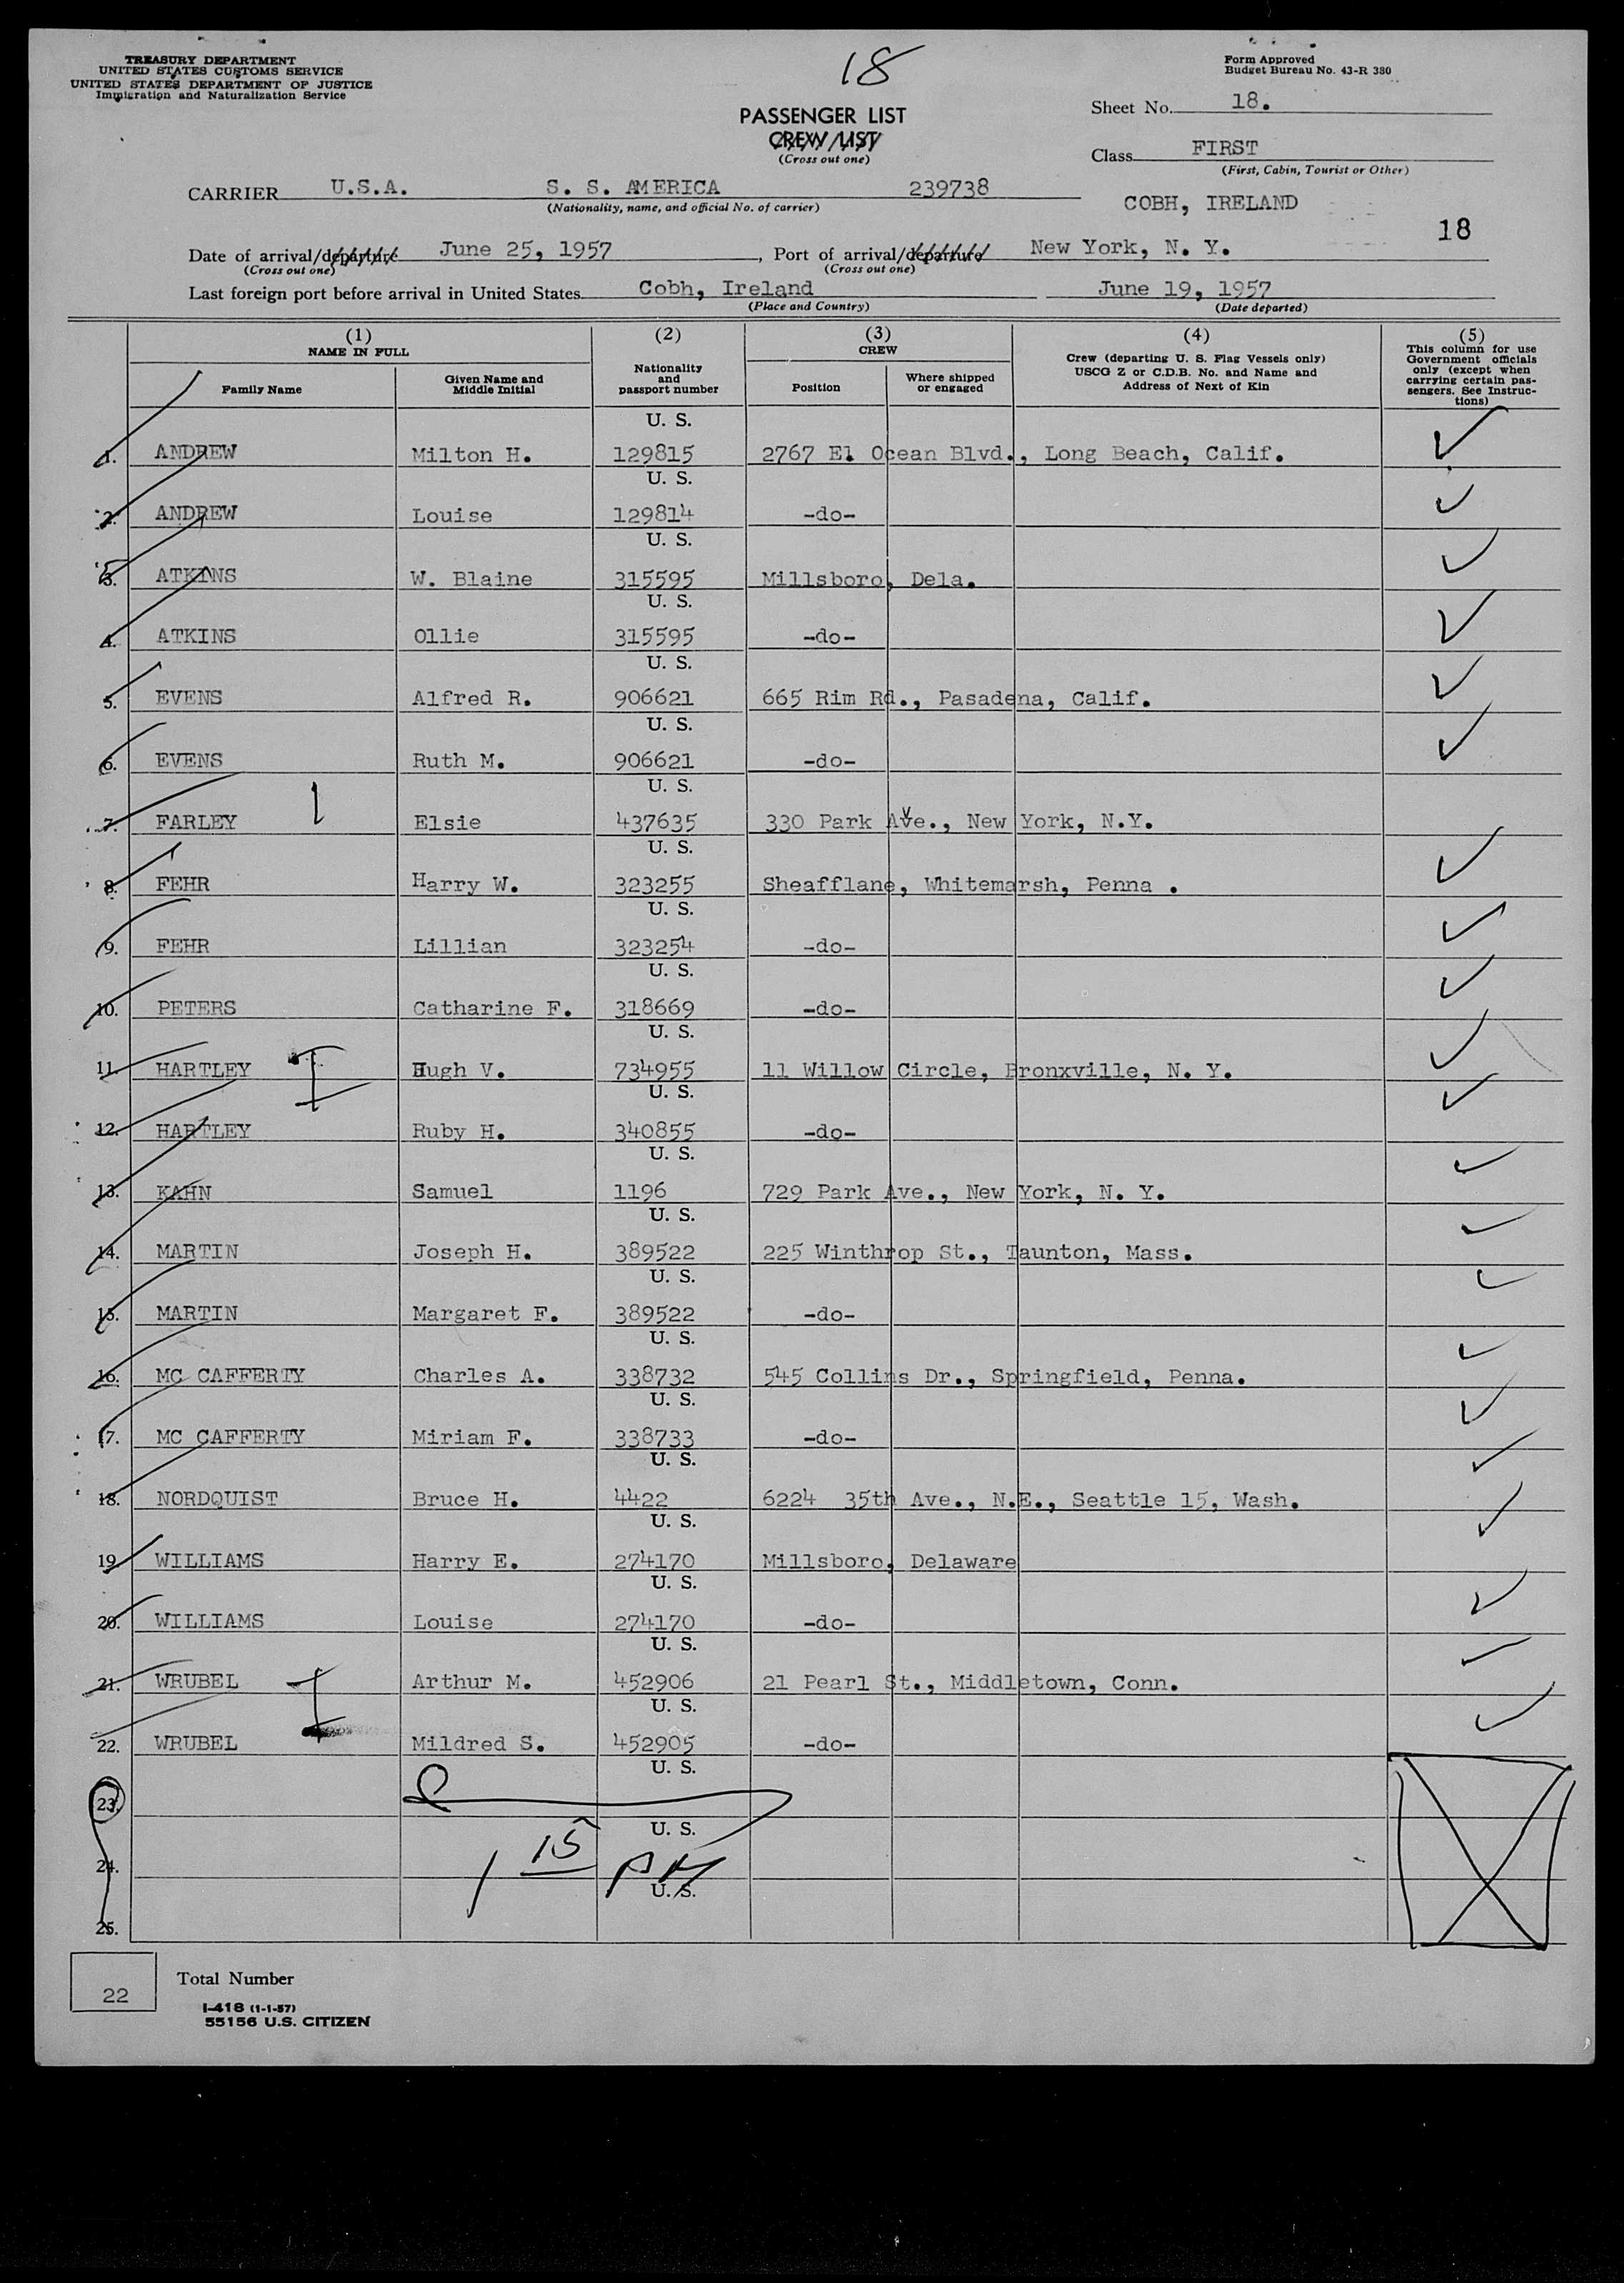 TREASURY DEPARTMENT
UNITED STATES CUSTOMS SERVICE
UNITED STATES DEPARTMENT OF JUSTICE
Immigration and Naturalization Service
18
Form Approved
Budget Bureau No. 43-R 380
PASSENGER LIST
CREW LIST
(Cross out one)
Sheet No. 18.
Class FIRST
(First, Cabin, Tourist or Other)
CARRIER U.S.A. S. S. AMERICA 239738
(Nationality, name, and official No. of carrier)
COBH, IRELAND
18
Date of arrival/departure June 25, 1957, Port of arrival/departure New York, N. Y.
(Cross out one) (Cross out one)
Last foreign port before arrival in United States Cobh, Ireland June 19, 1957
(Place and Country) (Date departed)
(1) (2) (3) (4) (5)
NAME IN FULL
Family Name
Given Name and
Middle Initial
Nationality
and
passport number
CREW
Position
Where shipped
or engaged
Crew (departing U. S. Flag Vessels only)
USCG Z or C.D.B. No. and Name and
Address of Next of Kin
This column for use
Government officials
only (except when
carrying certain pas-
sengers. See Instruc-
tions)
U. S.
1. ANDREW Milton H. 129815 2767 El Ocean Blvd., Long Beach, Calif.
U. S.
2. ANDREW Louise 129814 -do-
U. S.
3. ATKINS W. Blaine 315595 Millsboro, Dela.
U. S.
4. ATKINS Ollie 315595 -do-
U. S.
5. EVENS Alfred R. 906621 665 Rim Rd., Pasadena, Calif.
U. S.
6. EVENS Ruth M. 906621 -do-
U. S.
7. FARLEY Elsie 437635 330 Park Ave., New York, N.Y.
U. S.
8. FEHR Harry W. 323255 Sheafflane, Whitemarsh, Penna .
U. S.
9. FEHR Lillian 323254 -do-
U. S.
10. PETERS Catharine F. 318669 -do-
U. S.
11. HARTLEY Hugh V. 734955 11 Willow Circle, Bronxville, N. Y.
U. S.
12. HARTLEY Ruby H. 340855 -do-
U. S.
13. KAHN Samuel 1196 729 Park Ave., New York, N. Y.
U. S.
14. MARTIN Joseph H. 389522 225 Winthrop St., Taunton, Mass.
U. S.
15. MARTIN Margaret F. 389522 -do-
U. S.
16. MC CAFFERTY Charles A. 338732 545 Collins Dr., Springfield, Penna.
U. S.
17. MC CAFFERTY Miriam F. 338733 -do-
U. S.
18. NORDQUIST Bruce H. 4422 6224 35th Ave., N.E., Seattle 15, Wash.
U. S.
19. WILLIAMS Harry E. 274170 Millsboro, Delaware
U. S.
20. WILLIAMS Louise 274170 -do-
U. S.
21. WRUBEL Arthur M. 452906 21 Pearl St., Middletown, Conn.
U. S.
22. WRUBEL Mildred S. 452905 -do-
U. S.
23.
U. S.
24. 1 15 PM
U. S.
25.
22 Total Number
I-418 (1-1-57)
55156 U.S. CITIZEN